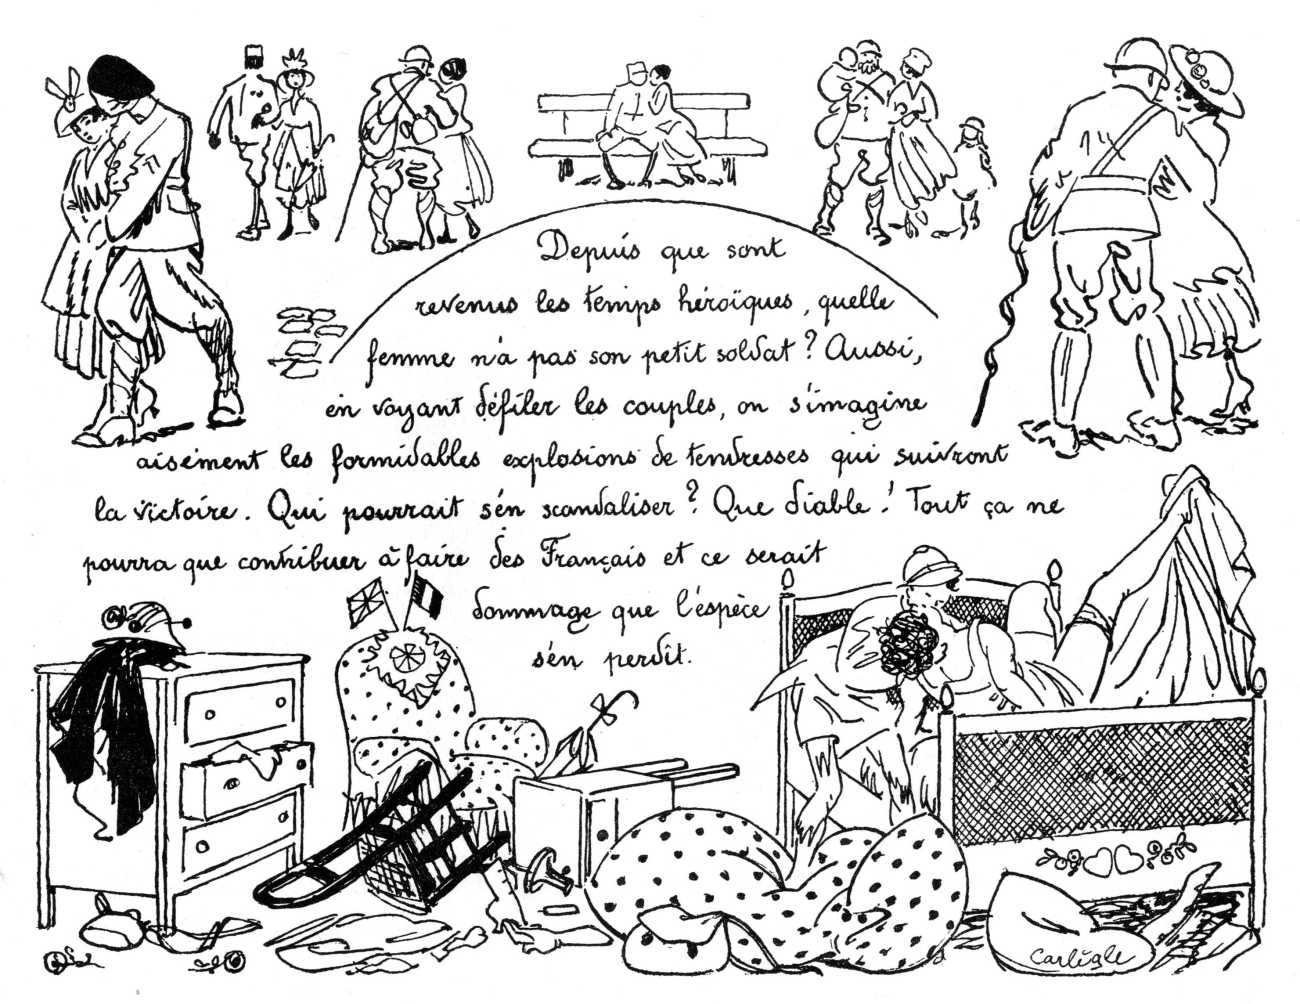 Depuis que sont
revenus les temps héroïques, quelle
femme n'a pas son petit soldat ? Aussi,
en voyant défiler les couples, on s'imagine
aisément les formidables explosions de tendresses qui suivront
la victoire. Qui pourrait s'en scandaliser ? Que diable ! Tout ça ne
pourra que contribuer à faire des Français et ce serait
dommage que l'espèce
s'en perdît.
Carlègle